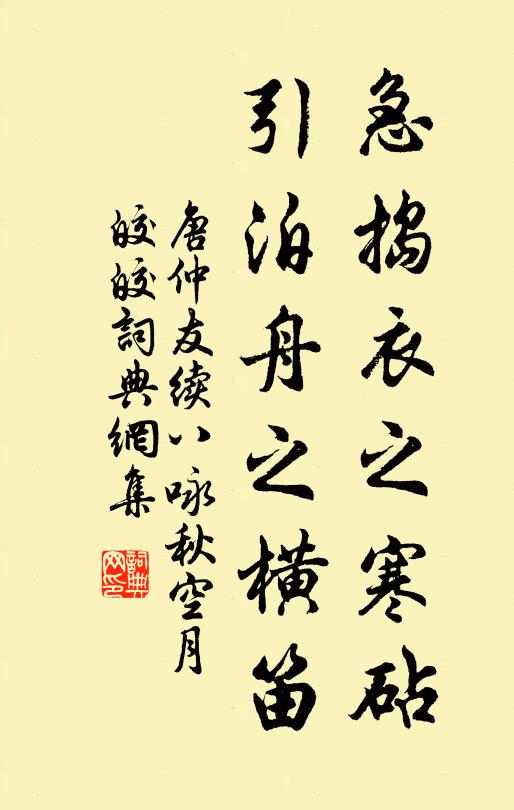 急搗衣之寒砧
引泊舟之横笛
唐仲友續八咏秋空月
皎皎詞典網集
詞典网印